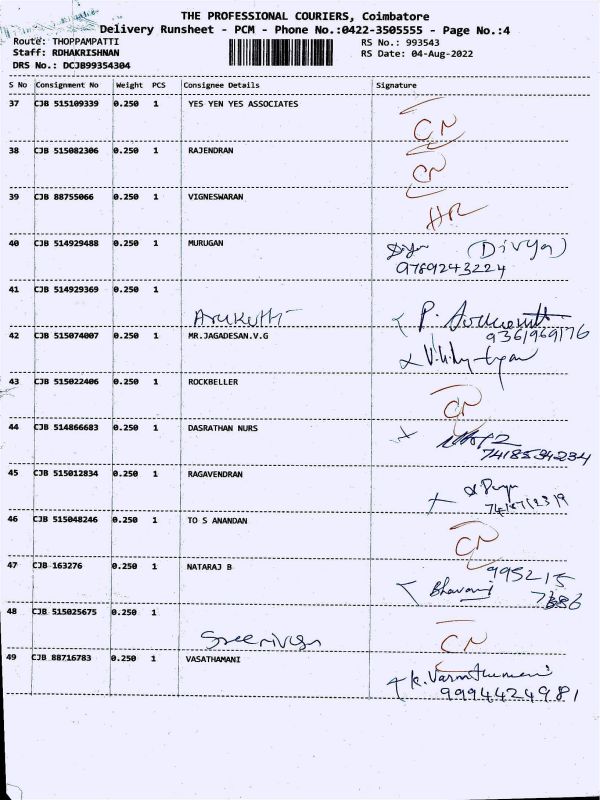 THE PROFESSIONAL COURIERS, Coimbatore
Delivery Runsheet - PCM - Phone No.:0422-3505555 - Page No.:4
Route: THOPPAMPATTI RS No.: 993543
Staff: RDHAKRISHNAN RS Date: 04-Aug-2022
DRS No.: DCJB99354304
S No Consignment No Weight PCS Consignee Details Signature
37 CJB 515109339 0.250 1 YES YEN YES ASSOCIATES
CN
38 CJB 515082306 0.250 1 RAJENDRAN
CN
39 CJB 88755066 0.250 1 VIGNESWARAN
HR
40 CJB 514929488 0.250 1 MURUGAN (Divya)
9789243224
41 CJB 514929369 0.250 1
Arukuthi P.
9361969176
42 CJB 515074007 0.250 1 MR.JAGADESAN.V.G
43 CJB 515022406 0.250 1 ROCKBELLER
CN
44 CJB 514866683 0.250 1 DASRATHAN NURS
7418534234
45 CJB 515012834 0.250 1 RAGAVENDRAN
46 CJB 515048246 0.250 1 TO S ANANDAN
CN
47 CJB 163276 0.250 1 NATARAJ B 995215
Bhavani
48 CJB 515025675 0.250 1
Sreerivasn CN
49 CJB 88716783 0.250 1 VASATHAMANI
K. Vasanthamani
9994424981